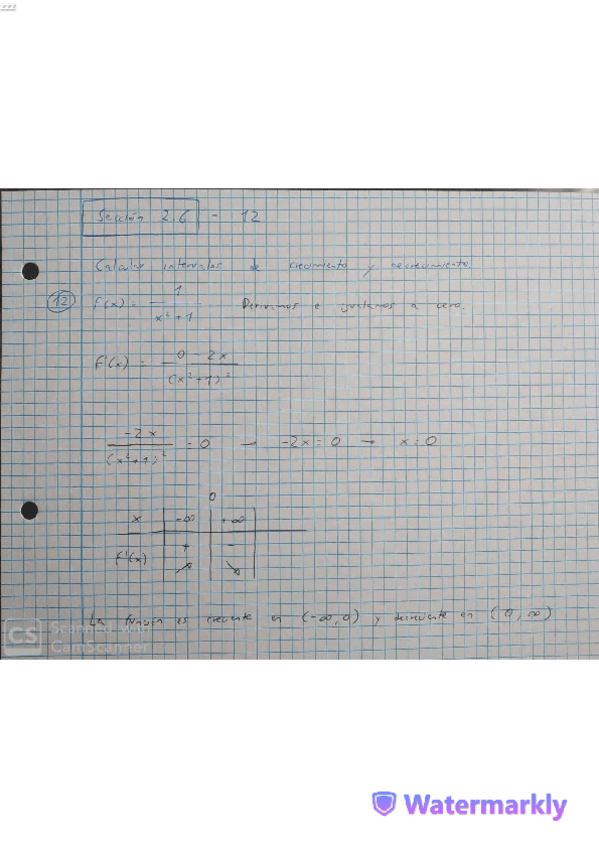 Sección 2.6 - 12
Calcular intervalos de crecimiento y decrecimiento
12 f(x) = 1 / x² + 1 Derivamos e igualamos a cero.
f'(x) = 0 - 2x / (x² + 1)²
-2x / (x² + 1)² = 0 → -2x = 0 → x = 0
0
x -∞ +∞
f'(x) + -
↗ ↘
La función es creciente en (-∞, 0) y decreciente en (0, ∞)
CS Scanned with
CamScanner
Watermarkly